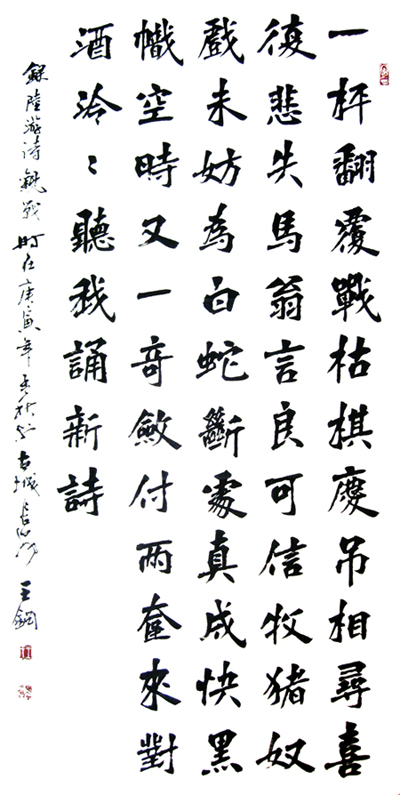 一枰翻覆戰枯棋慶吊相尋喜
復悲失馬翁言良可信牧猪奴
戲未妨為白蛇斷處真成快黑
幟空時又一奇斂付兩奩來對
酒泠〻聽我誦新詩
錄陸游诗 戰 時在庚寅年 古城長 王鋼